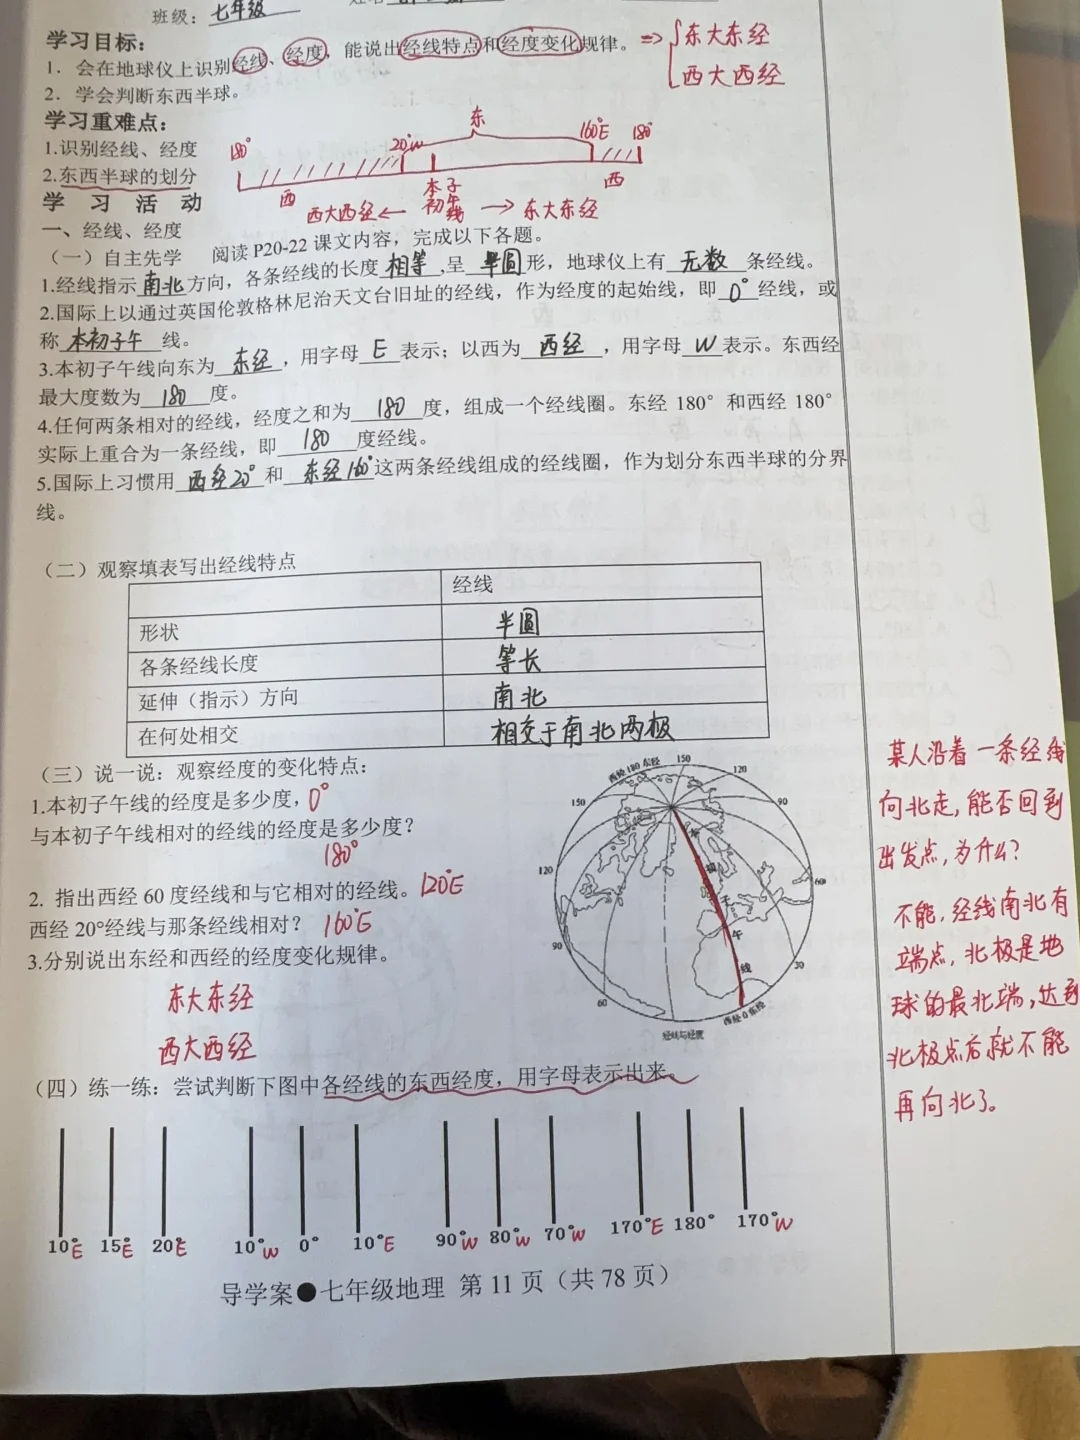 班级：七年级
学习目标：
1．会在地球仪上识别经线、经度，能说出经线特点和经度变化规律。⇒{东大东经
西大西经
2．学会判断东西半球。
学习重难点：
1.识别经线、经度
2.东西半球的划分
180° 20°W 东 160°E 180°
西 本初子午线 西
西大西经← → 东大东经
学 习 活 动
一、经线、经度
（一）自主先学 阅读 P20-22 课文内容，完成以下各题。
1.经线指示南北方向，各条经线的长度相等,呈半圆形，地球仪上有无数条经线。
2.国际上以通过英国伦敦格林尼治天文台旧址的经线，作为经度的起始线，即0°经线，或
称本初子午线。
3.本初子午线向东为东经，用字母E表示；以西为西经，用字母W表示。东西经
最大度数为180度。
4.任何两条相对的经线，经度之和为180度，组成一个经线圈。东经 180°和西经 180°
实际上重合为一条经线，即180度经线。
5.国际上习惯用西经20°和东经160°这两条经线组成的经线圈，作为划分东西半球的分界
线。
（二）观察填表写出经线特点
经线
形状 半圆
各条经线长度 等长
延伸（指示）方向 南北
在何处相交 相交于南北两极
（三）说一说：观察经度的变化特点：
1.本初子午线的经度是多少度，0°
与本初子午线相对的经线的经度是多少度？
180°
2. 指出西经 60 度经线和与它相对的经线。120°E
西经 20°经线与那条经线相对？ 160°E
3.分别说出东经和西经的经度变化规律。
东大东经
西大西经
西经 180 东经 150
120
150
90
120
60
90
30
60
本初子午线
西经 0 东经
经线与经度
某人沿着一条经线
向北走，能否回到
出发点，为什么？
不能，经线南北有
端点，北极是地
球的最北端，达到
北极点后就不能
再向北了。
（四）练一练：尝试判断下图中各经线的东西经度，用字母表示出来。
10°E 15°E 20°E 10°W 0° 10°E 90°W 80°W 70°W 170°E 180° 170°W
导学案●七年级地理 第 11 页（共 78 页）